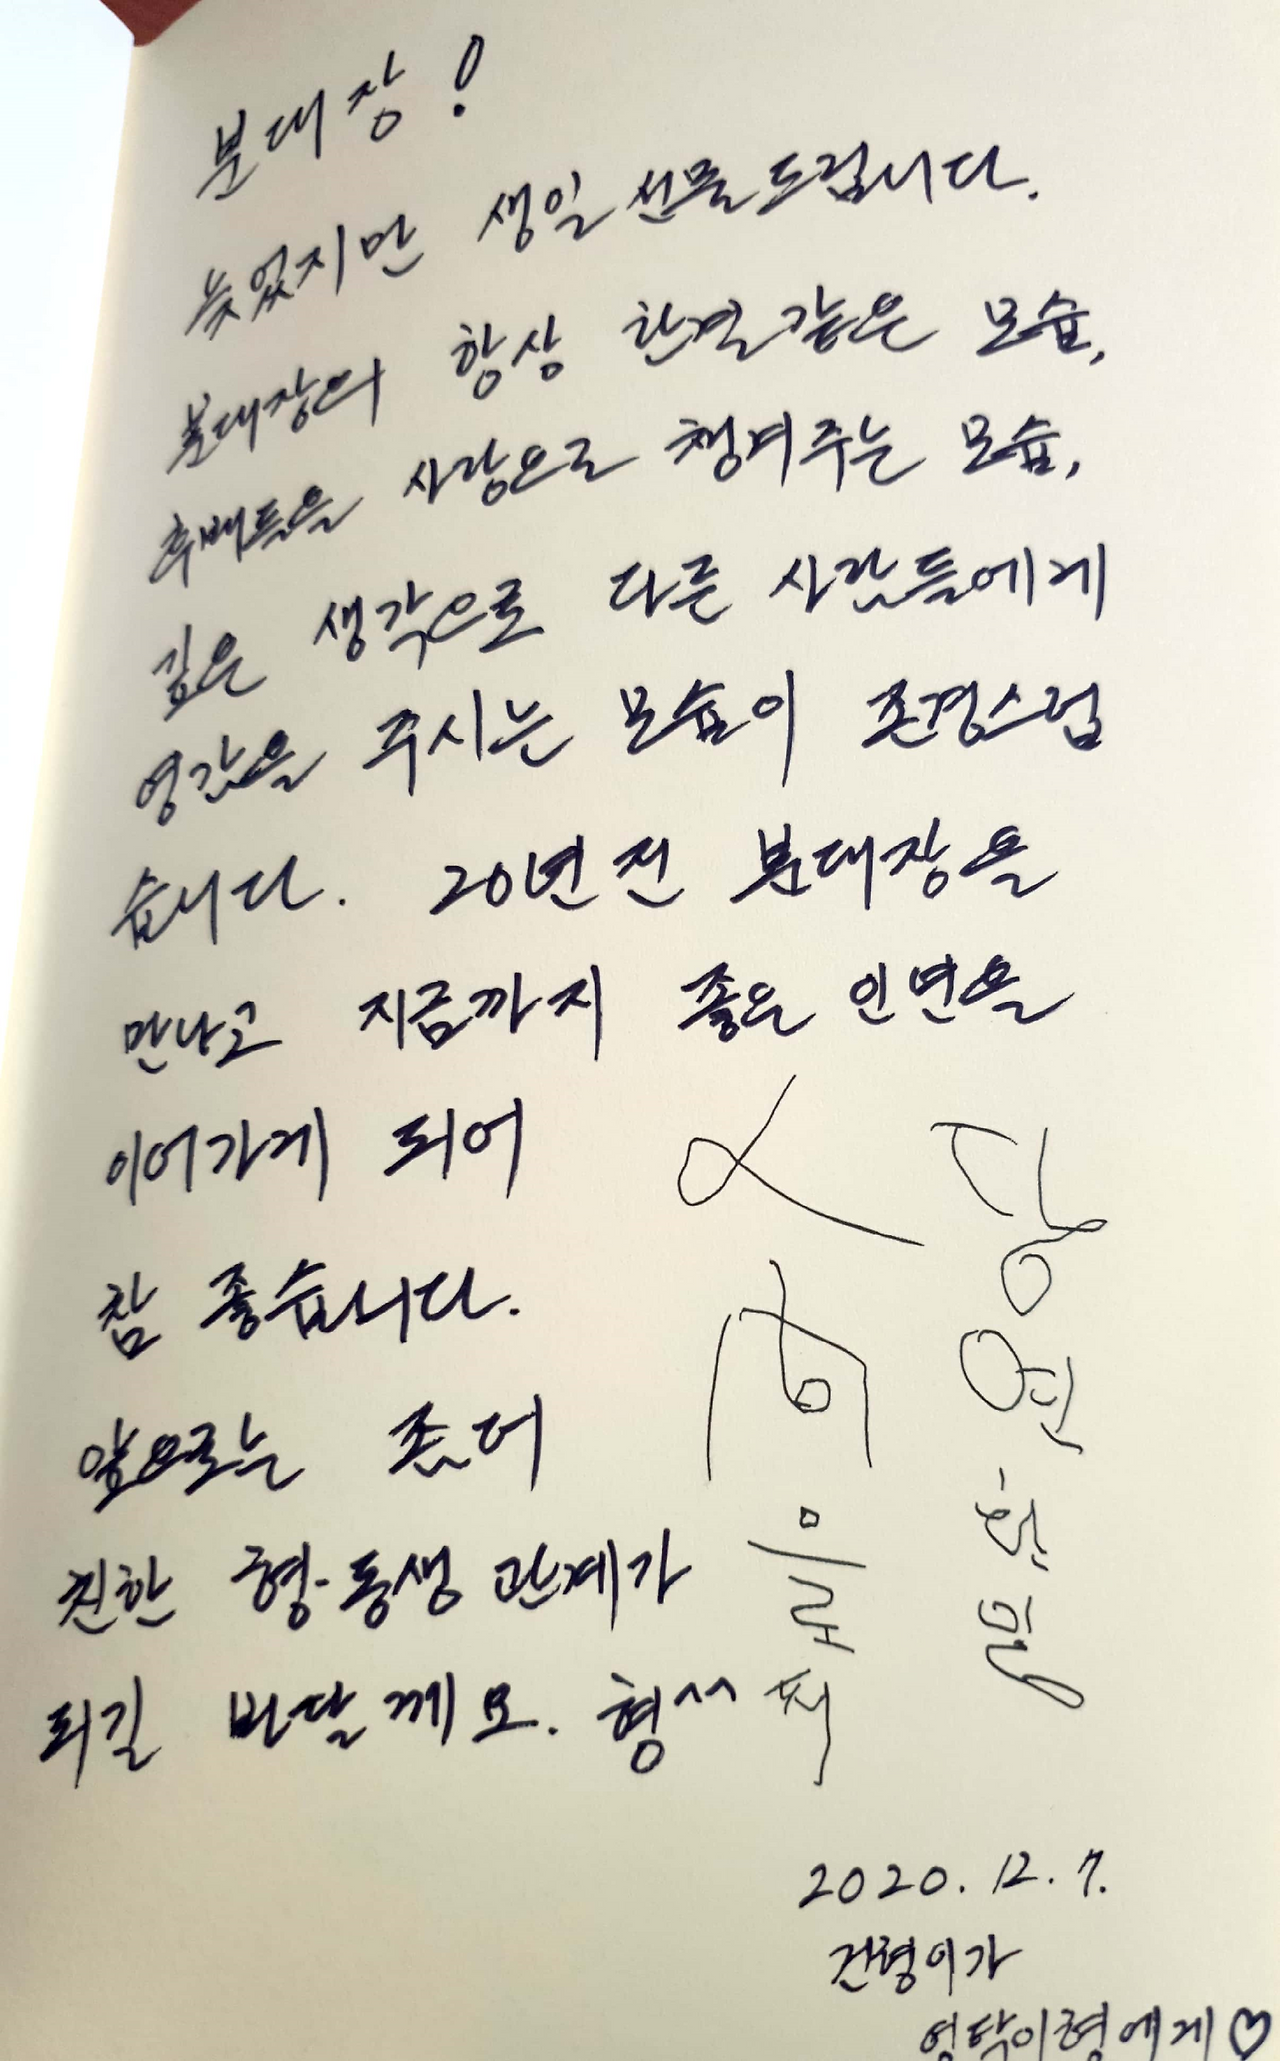 분대장!
늦었지만 생일 선물 드립니다.
분대장의 항상 한결같은 모습,
후배들을 사랑으로 챙겨주는 모습,
깊은 생각으로 다른 사람들에게
영감을 주시는 모습이 존경스럽
습니다. 20년 전 분대장을
만나고 지금까지 좋은 인연을
이어가게 되어
참 좋습니다.
앞으로는 좀더
친한 형·동생 관계가
되길 바랄께요. 형^^
2020. 12. 7.
건형이가
영탁이형에게♡